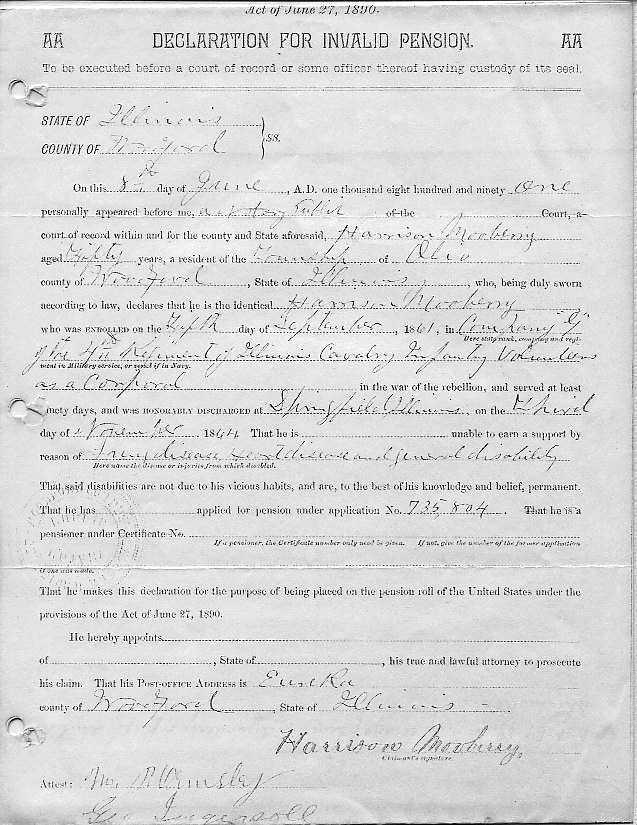 Act of June 27, 1890.
AA DECLARATION FOR INVALID PENSION. AA
To be executed before a court of record or some officer thereof having custody of its seal.
STATE OF Illinois
COUNTY OF Woodford } SS.
On this 8th day of June, A.D. one thousand eight hundred and ninety One
personally appeared before me, a Notary Public of the Court, a
court of record within and for the county and State aforesaid, Harrison Mooberry
aged years, a resident of the Township of Olio
county of Woodford, State of Illinois, who, being duly sworn
according to law, declares that he is the identical Harrison Mooberry
who was ENROLLED on the Fifth day of September, 1861, in Company "G"
Here state rank, company and regi-
of the Regiment of Illinois Cavalry Infantry Volunteers
ment in Military service, or vessel if in Navy.
as a Corporal in the war of the rebellion, and served at least
ninety days, and was HONORABLY DISCHARGED at Springfield Illinois on the Third
day of November 1864 That he is unable to earn a support by
reason of Lung disease Heart disease and general disability
Here name the disease or injuries from which disabled.
That said disabilities are not due to his vicious habits, and are, to the best of his knowledge and belief, permanent.
That he has applied for pension under application No. 735,804. That he is a
pensioner under Certificate No.
If a pensioner, the Certificate number only need is given. If not, give the number of the former application
if one was made.
That he makes this declaration for the purpose of being placed on the pension roll of the United States under the
provisions of the Act of June 27, 1890.
He hereby appoints
of , State of , his true and lawful attorney to prosecute
his claim. That his POST-OFFICE ADDRESS is Eureka
county of Woodford, State of Illinois
Harrison Mooberry,
Claimant's signature.
Attest: Wm. P. Ormsby
Geo Ingersoll